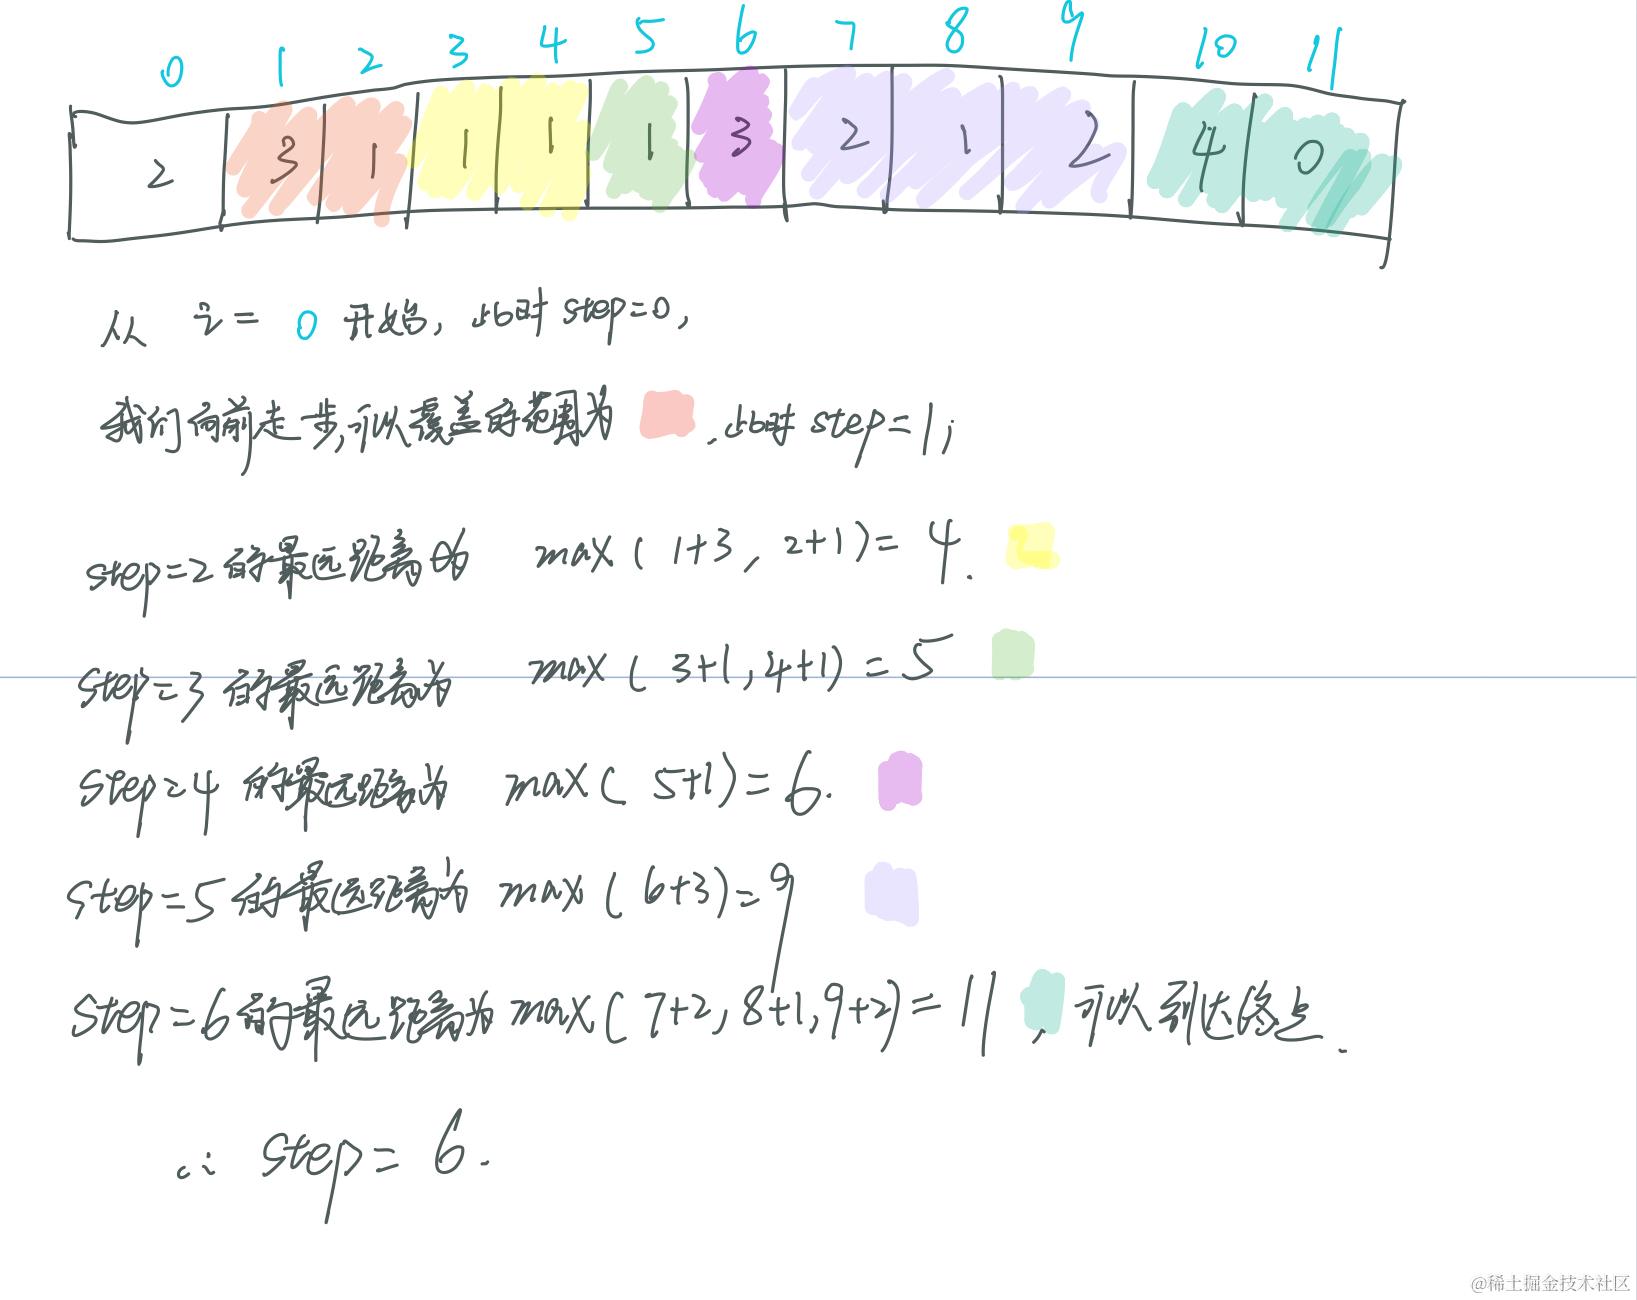 0 1 2 3 4 5 6 7 8 9 10 11
2 3 1 1 1 1 3 2 1 2 4 0
从 i = 0 开始, 此时 step=0,
我们向前走一步,可以覆盖的范围为 ,此时 step=1;
step=2 的最远距离为 max ( 1+3 , 2+1) = 4.
step=3 的最远距离为 max ( 3+1, 4+1) = 5
step=4 的最远距离为 max ( 5+1) = 6.
step=5 的最远距离为 max ( 6+3) = 9
step=6 的最远距离为 max ( 7+2, 8+1, 9+2) = 11 , 可以到达终点.
∴ step = 6.
@稀土掘金技术社区